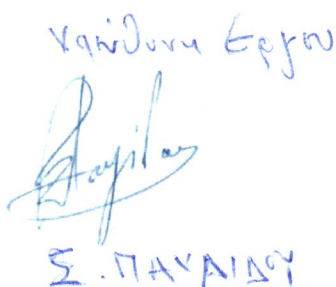 Υπεύθυνη Έργου
Σ. ΠΑΥΛΙΔΟΥ